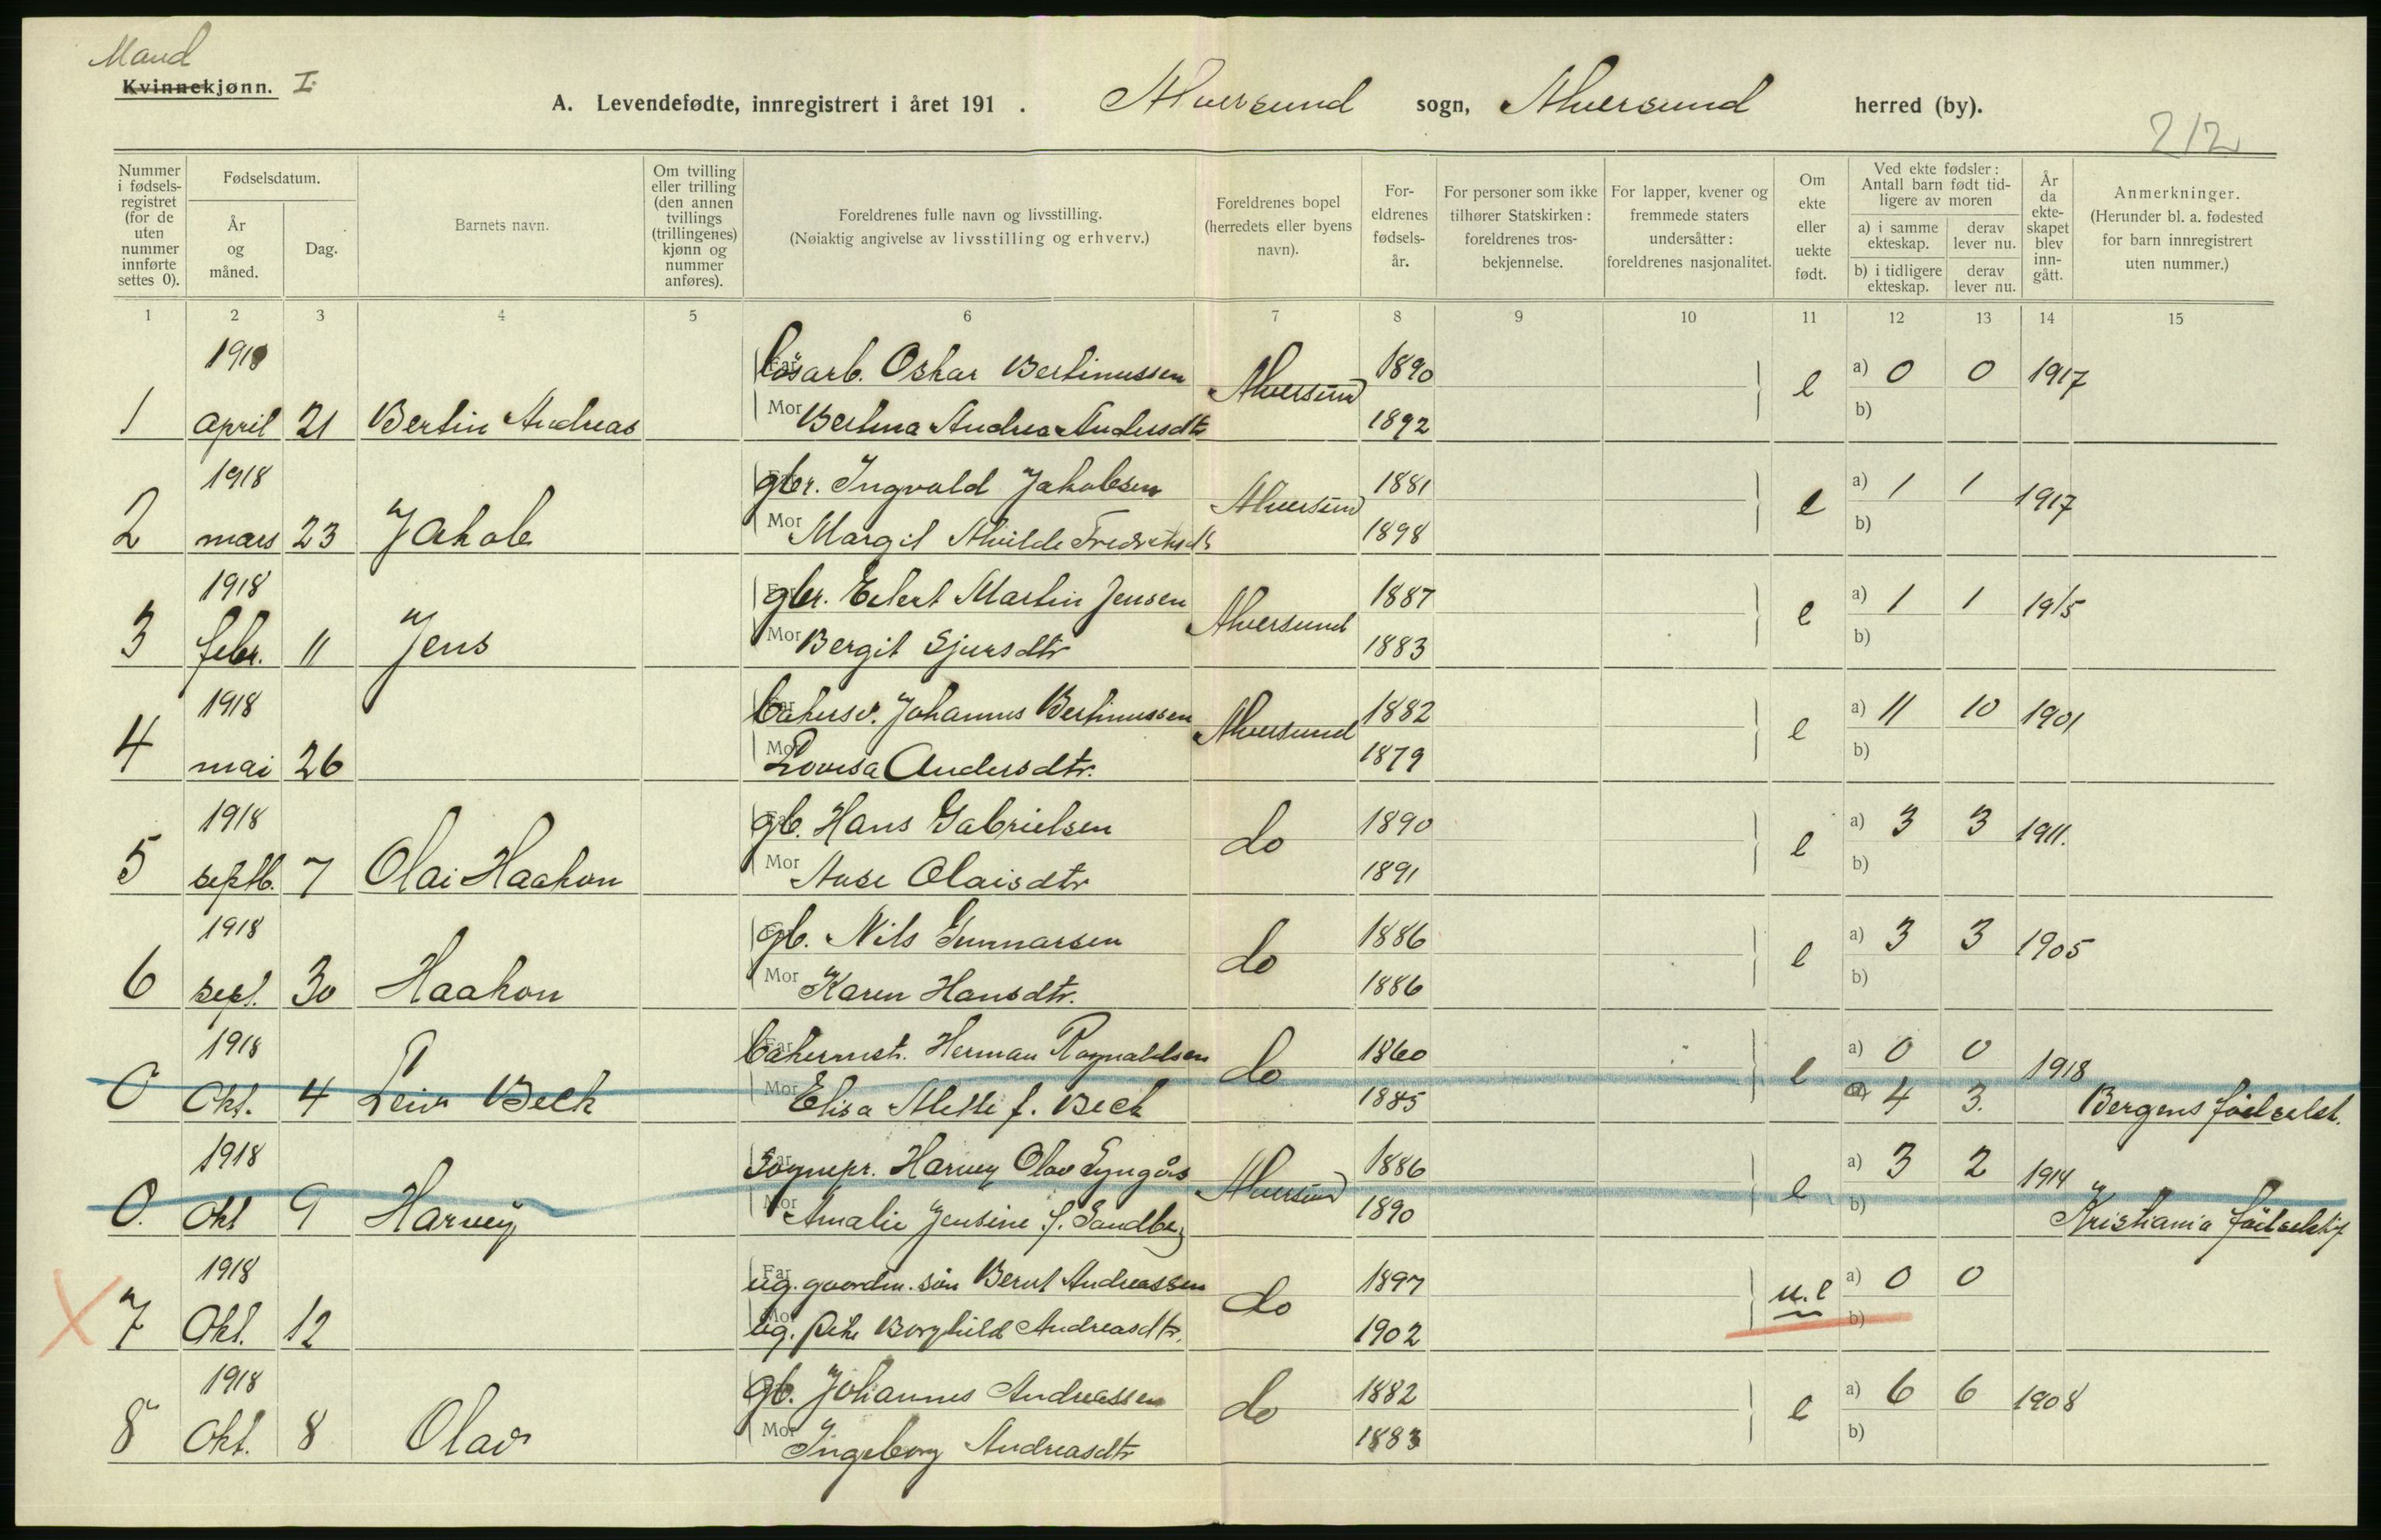 Mand
Kvinnekjønn. I.
A. Levendefødte, innregistrert i året 191 . Alversund sogn, Alversund herred (by).
212
Nummer i fødsels-registret (for de uten nummer innførte settes 0).
Fødselsdatum.
År og måned.
Dag.
Barnets navn.
Om tvilling eller trilling (den annen tvillings (trillingenes) kjønn og nummer anføres).
Foreldrenes fulle navn og livsstilling.
(Nøiaktig angivelse av livsstilling og erhverv.)
Foreldrenes bopel (herredets eller byens navn).
For-eldrenes fødsels-år.
For personer som ikke tilhører Statskirken: foreldrenes tros-bekjennelse.
For lapper, kvener og fremmede staters undersåtter: foreldrenes nasjonalitet.
Om ekte eller uekte født.
Ved ekte fødsler: Antall barn født tid-ligere av moren
a) i samme ekteskap.
derav lever nu.
b) i tidligere ekteskap.
derav lever nu.
År da ekte-skapet blev inn-gått.
Anmerkninger.
(Herunder bl. a. fødested for barn innregistrert uten nummer.)
1 2 3 4 5 6 7 8 9 10 11 12 13 14 15
1918 Far løsarb. Oskar Bertinussen Alversund 1890 e a) 0 0 1917
1 april 21 Bertin Andreas Mor Bertina Andrea Andersdtr 1892 b)
1918 gbr. Ingvald Jakobsen Alversund 1881 e a) 1 1 1917
2 mars 23 Jakob Mor Margit Alvilde Fredriksdtr 1898 b)
1918 gbr. Eilert Martin Jensen Alversund 1887 e a) 1 1 1915
3 febr. 11 Jens Mor Bergit Sjursdtr 1883 b)
1918 Far bakersv. Johannes Bertinussen Alversund 1882 e a) 11 10 1901
4 mai 26 Mor Lovisa Andersdtr. 1879 b)
1918 gb. Hans Gabrielsen do 1890 e a) 3 3 1911.
5 septb. 7 Olai Haakon Mor Anse Olaisdtr 1891 b)
1918 gb. Nils Gunnarsen do 1886 e a) 3 3 1905
6 sept. 30 Haakon Mor Karen Hansdtr. 1886 b)
1918 Far bakermst. Herman Ragnaldsen do 1860 e a) 0 0 1918
0 Okt. 4 Leiv Beck Mor Elisa Mette f. Beck 1885 4 3. Bergens fødselst.
1918 Far Sognepr. Harvey Olav Lyngås Alversund 1886 e a) 3 2 1914
0. Okt 9 Harvey Mor Amalie Jensine f. Sandberg 1890 b) Kristiania
1918 Far ug. gaardm. søn Bernt Andreassen do 1897 u.e a) 0 0
X 7 Okt. 12 Mor ug. pike Borghild Andreasdtr. 1902 b)
1918 gb. Johannes Andreassen do 1882 e a) 6 6 1908
8 Okt. 8 Olav Mor Ingeborg Andreasdtr 1883 b)